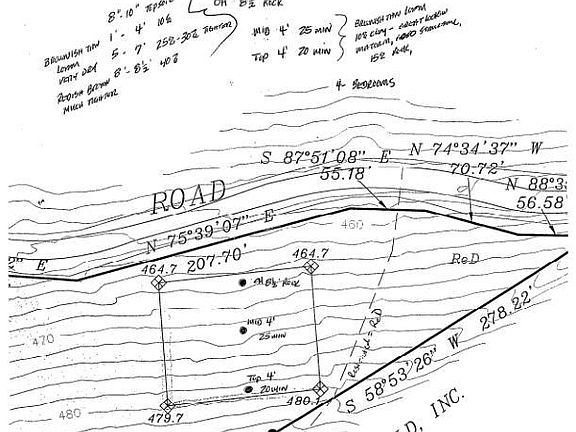 8"-10" TOPSOIL
OH 8½ ROCK
BROWNISH TAN 1' - 4' 10%
LOAM 5 - 7' 25%-30% TIGHTER
VERY DRY 8' - 8½' 40%
REDISH BROWN
MUCH TIGHTER
MID 4' 25 MIN
TOP 4' 20 MIN
BROWNISH TAN LOAM
15% ROCK,
4- BEDROOMS
S 87°51'08" E
55.18'
N 74°34'37" W
70.72'
N 88°3
56.58'
ROAD
N 75°39'07" E
207.70'
" E
460
464.7
464.7
OH 8½' ROCK
ReD
MID 4'
25 MIN
470
TOP 4'
20 MIN
480
479.7
480.1
ReD
S 58°53'26" W 278.22'
D, INC.